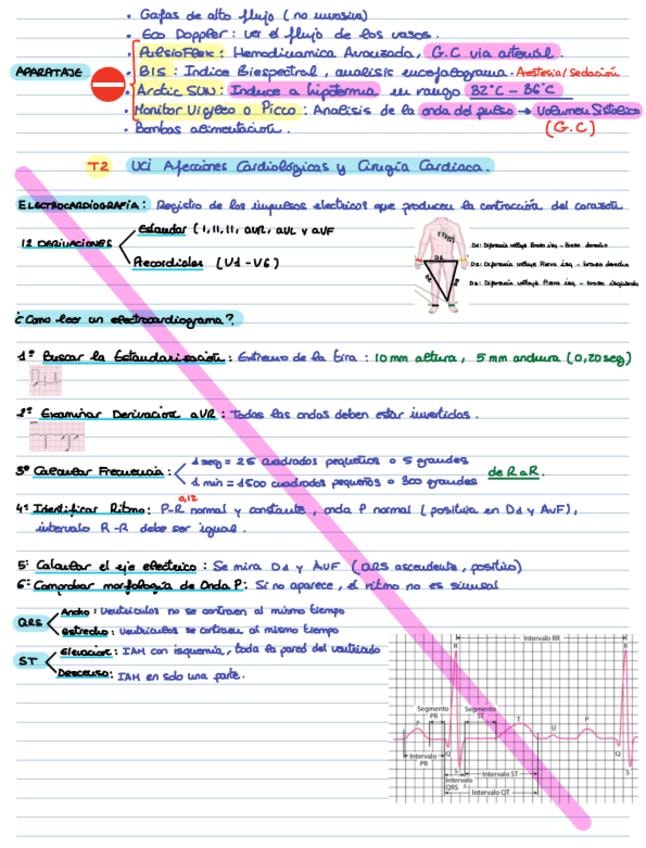 • Gafas de alto flujo (no invasiva)
• Eco Doppler: ver el flujo de los vasos.
• PulsioFlex: Hemodinamica Avanzada, G.C via arterial.
APARATAJE
• BIS: Indice Biespectral, analisis encefalograma. Anestesia/Sedación
• Arctic SUN: Induce a hipotermia en rango 32°C - 36°C
• Monitor Vigileo o Picco: Analisis de la onda del pulso → Volumen Sistolico
(G.C)
• Bombas alimentacion.
T2 UCI Afecciones Cardiológicas y Cirugía Cardiaca.
ELECTROCARDIOGRAFÍA: Registro de los impulsos electricos que producen la contracción del corazón
12 DERIVACIONES
Estandar (I, II, II, aVR, aVL y aVF
Precordiales (V1-V6)
D1: Diferencia voltaje Brazo izq - Brazo derecho
D2: Diferencia voltaje Pierna izq - brazo derecho
D3: Diferencia voltaje Pierna izq - brazo izquierdo
¿Como leer un electrocardiograma?
1º Buscar la Estandarización: Extremo de la tira: 10 mm altura, 5 mm anchura (0,20 seg)
2º Examinar Derivacion aVR: Todas las ondas deben estar invertidas.
3º Calcular Frecuencia:
1 seg = 25 cuadrados pequeños o 5 grandes
1 min = 1500 cuadrados pequeños o 300 grandes
de R a R.
0,12
4º Identificar Ritmo: P-R normal y constante, onda P normal (positiva en D1 y AvF),
intervalo R-R debe ser igual.
5º Calcular el eje electrico: Se mira D1 y AVF (QRS ascendente, positivo)
6º Comprobar morfología de Onda P: Si no aparece, el ritmo no es sinusal
QRS
Ancho: Ventriculos no se contraen al mismo tiempo
estrecho: Ventriculos se contraen al mismo tiempo
ST
Elevacion: IAM con isquemia, toda la pared del ventriculo
Descenso: IAM en solo una parte.
Intervalo RR
R
R
Segmento PR
Segmento ST
P
T
U
P
Q
Q
S
S
Intervalo PR
Intervalo QRS
Intervalo ST
Intervalo QT